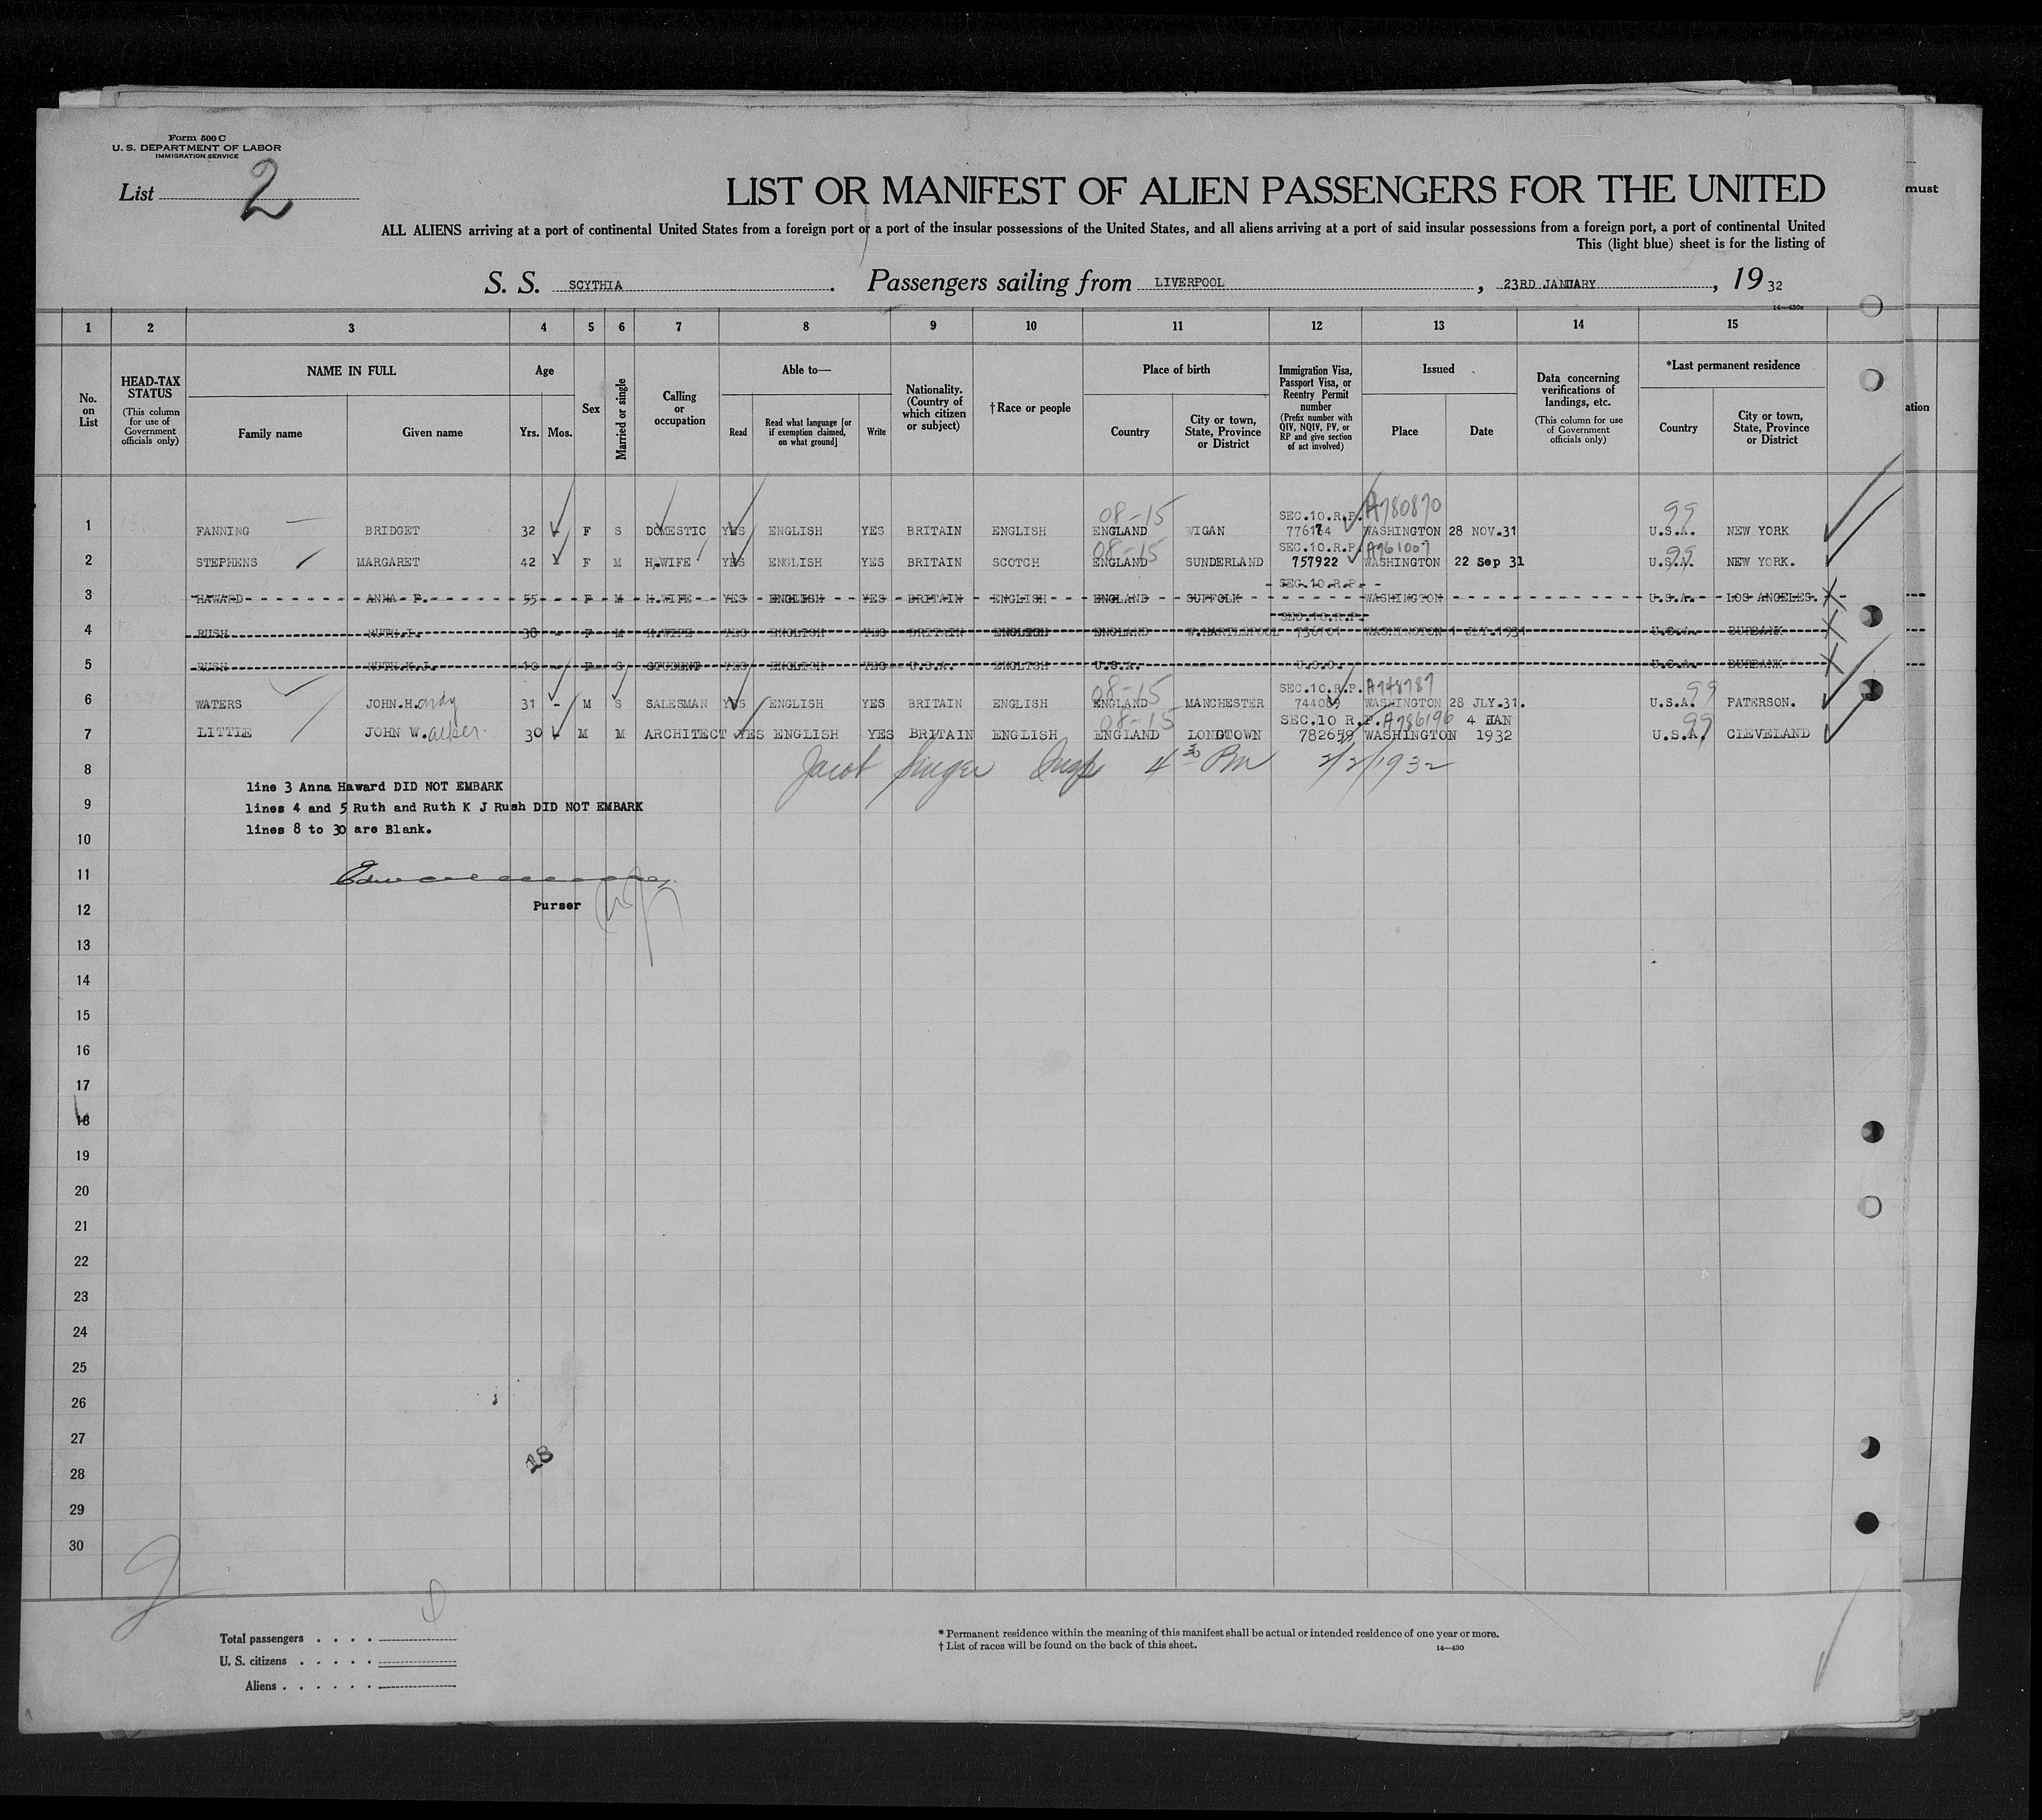 Form 500 C
U. S. DEPARTMENT OF LABOR
IMMIGRATION SERVICE
List 2
LIST OR MANIFEST OF ALIEN PASSENGERS FOR THE UNITED
must
ALL ALIENS arriving at a port of continental United States from a foreign port or a port of the insular possessions of the United States, and all aliens arriving at a port of said insular possessions from a foreign port, a port of continental United
This (light blue) sheet is for the listing of
S. S. SCYTHIA . Passengers sailing from LIVERPOOL , 23RD JANUARY , 19 32
14—430c
1 2 3 4 5 6 7 8 9 10 11 12 13 14 15
No. on List
HEAD-TAX STATUS (This column for use of Government officials only)
NAME IN FULL Family name Given name
Age Yrs. Mos.
Sex
Married or single
Calling or occupation
Able to— Read Read what language [or if exemption claimed, on what ground] Write
Nationality. (Country of which citizen or subject)
† Race or people
Place of birth Country City or town, State, Province or District
Immigration Visa, Passport Visa, or Reentry Permit number (Prefix number with QIV, NQIV, PV, or RP and give section of act involved)
Issued Place Date
Data concerning verifications of landings, etc. (This column for use of Government officials only)
*Last permanent residence Country City or town, State, Province or District
ation
08-15 SEC.10.R.P. A780870 99
1 FANNING BRIDGET 32 - F S DOMESTIC YES ENGLISH YES BRITAIN ENGLISH ENGLAND WIGAN 776164 WASHINGTON 28 NOV.31 U.S.A. NEW YORK
08-15 SEC.10.R.P. A761007 99
2 STEPHENS MARGARET 42 - F M H.WIFE YES ENGLISH YES BRITAIN SCOTCH ENGLAND SUNDERLAND 757922 WASHINGTON 22 Sep 31 U.S.A. NEW YORK.
SEC.10.R.P.
3 HAWARD ANNA P. 55 - F M H.WIFE YES ENGLISH YES BRITAIN ENGLISH ENGLAND SUFFOLK WASHINGTON U.S.A. LOS ANGELES.
SEC.10.R.P.
4 RUSH RUTH.I. 38 - F M H.WIFE YES ENGLISH YES BRITAIN ENGLISH ENGLAND W.HARTLEPOOL 736701 WASHINGTON 1 JLY.1931 U.S.A. BURBANK
5 RUSH RUTH.K.J. 10 - F S STUDENT YES ENGLISH YES U.S.A. ENGLISH U.S.A. U.S.C. U.S.A. BURBANK
08-15 SEC.10.R.P. A748787 99
6 WATERS JOHN.H.ardy 31 - M S SALESMAN YES ENGLISH YES BRITAIN ENGLISH ENGLAND MANCHESTER 744089 WASHINGTON 28 JLY.31. U.S.A. PATERSON.
08-15 SEC.10 R.P. A786196 4 JAN 99
7 LITTLE JOHN W.alker. 30 - M M ARCHITECT YES ENGLISH YES BRITAIN ENGLISH ENGLAND LONGTOWN 782659 WASHINGTON 1932 U.S.A. CLEVELAND
8 Jacob Singer Insp 4 30 Pm 2/2/1932
line 3 Anna Haward DID NOT EMBARK
9 lines 4 and 5 Ruth and Ruth K J Rush DID NOT EMBARK
10 lines 8 to 30 are Blank.
11
12 Purser
13
14
15
16
17
18
19
20
21
22
23
24
25
26
27
28
28
29
30
2
Total passengers
U. S. citizens
Aliens
* Permanent residence within the meaning of this manifest shall be actual or intended residence of one year or more.
† List of races will be found on the back of this sheet.
14—430